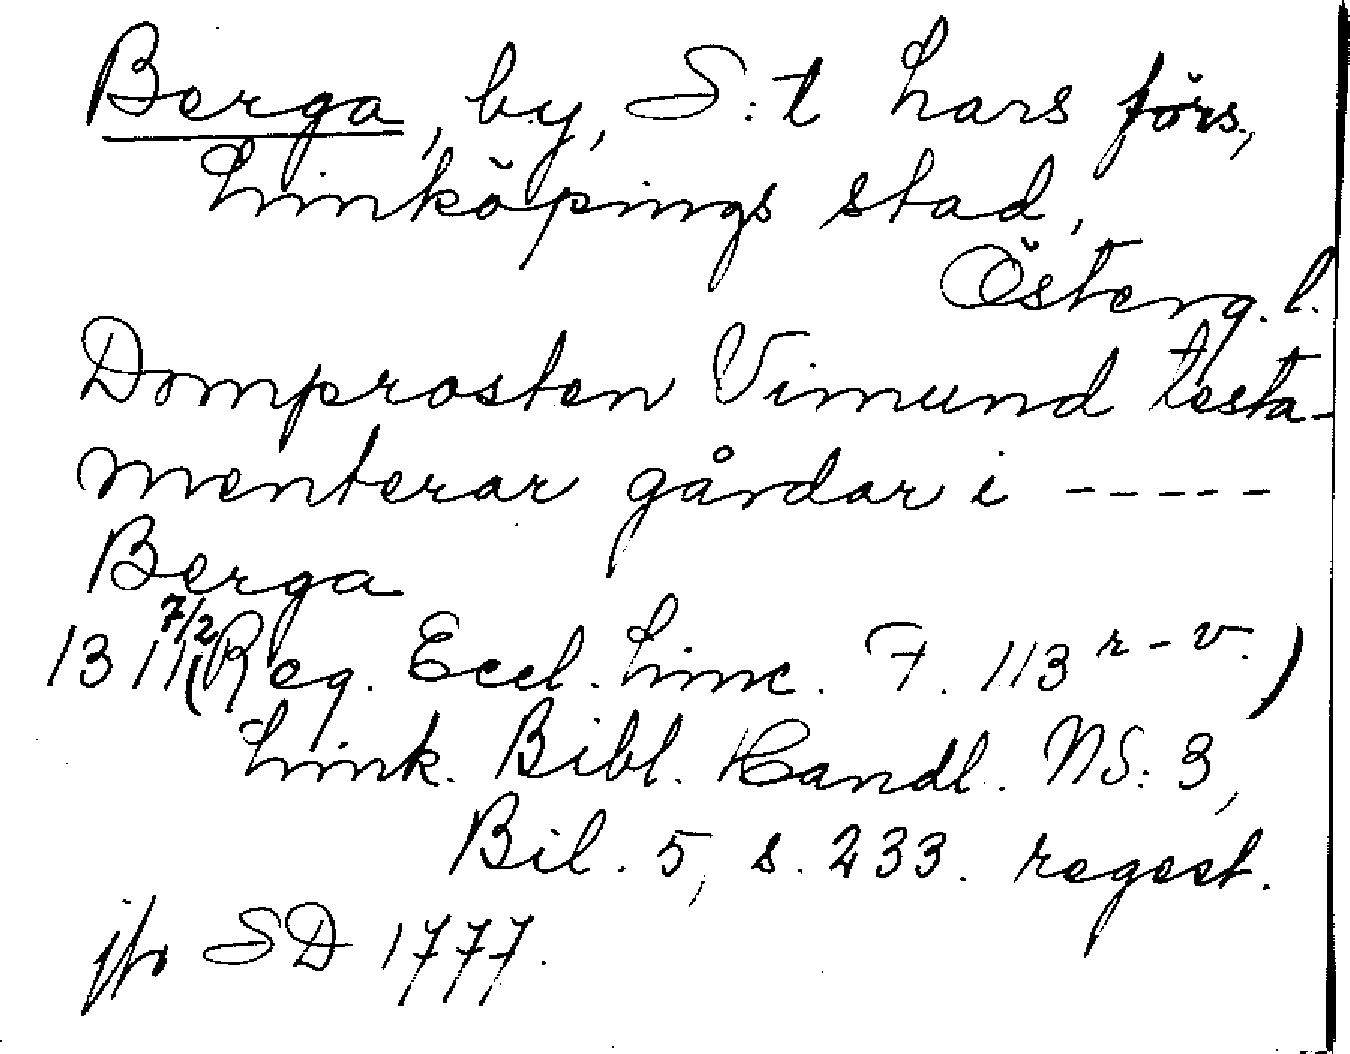 Berga, by, S:t Lars förs.,
Linköpings stad,
Österg. l.
Domprosten Vimund testa-
menterar gårdar i -----
Berga
1311 7/2 (Reg. Eccl. Linc. F. 113 r-v.)
Link. Bibl. Handl. NS: 3,
Bil. 5, s. 233. regest.
jfr SD 1777.